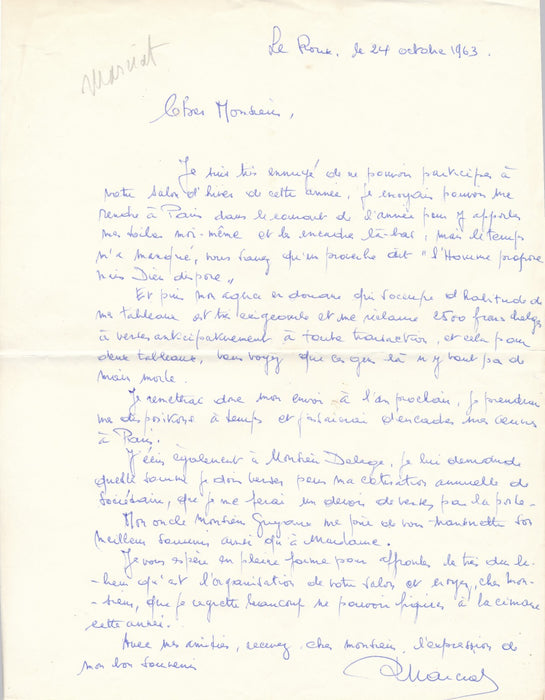 Marciat
Le Roux, le 24 octobre 1963.
Cher Monsieur,
Je suis très ennuyé de ne pouvoir participer à
votre salon d'hiver de cette année, je croyais pouvoir me
rendre à Paris dans le courant de l'année pour y apporter
mes toiles moi-même et les encadrer là-bas, mais le temps
m'a manqué, vous savez qu'un proverbe dit "l'Homme propose
mais Dieu dispose"
Et puis mon agence en douane qui s'occupe d'habitude de
mes tableaux est très exigeante et me réclame 2500 francs belges
à verser anticipativement à toute transaction, et cela pour
deux tableaux, vous voyez que ces gens là n'y vont pas de
main morte.
Je remettrai donc mon envoi à l'an prochain, je prendrai
mes dispositions à temps et d'encadrer mes œuvres
à Paris.
J'écris également à Monsieur Delage, je lui demande
quelle somme je dois verser pour ma cotisation annuelle de
Sociétaire, que je me ferai un devoir de verser par la poste.
Mon oncle Monsieur Guyaux me prie de vous transmettre son
meilleur souvenir ainsi qu'à Madame.
Je vous espère en pleine forme pour affronter le très dur la-
-beur qu'est l'organisation de votre salon et croyez, cher mon-
-sieur, que je regrette beaucoup ne pouvoir figurer à la cimaise
cette année.
Avec mes amitiés, recevez, cher monsieur, l'expression de
mon bon souvenir